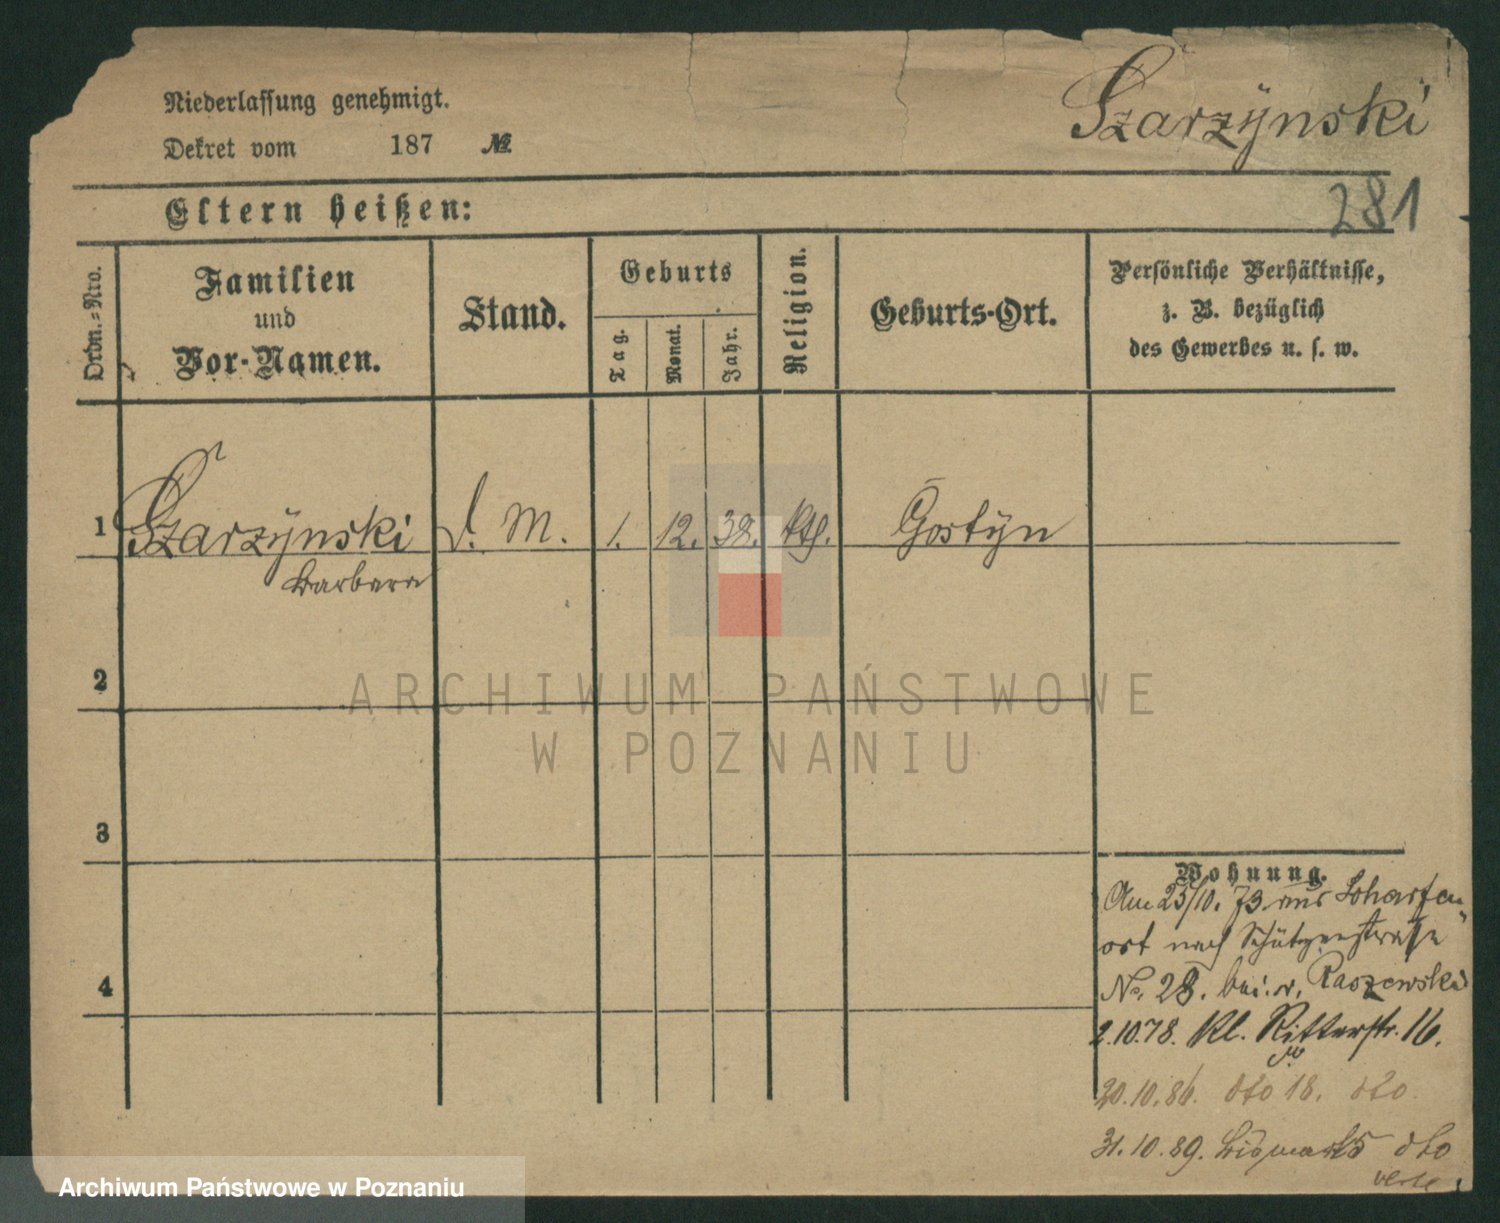 Niederlassung genehmigt.
Dekret vom 187 №
Szarzÿnski
281
Eltern heißen:
Ordn.=Nro.
Familien
und
Vor-Namen.
Stand.
Geburts
Tag.
Monat.
Jahr.
Religion.
Geburts-Ort.
Persönliche Verhältnisse,
z. B. bezüglich
des Gewerbes u. s. w.
1 Szarzÿnski d. M. 1. 12. 38. kth. Gostÿn
Barbara
2
3
4
Wohnung.
Am 25/10. 73 aus Scharfen
ort nach Schützenstraße
No. 28. bei v. Raszewski
2.10.78. Kl. Ritterstr. 16.
20.10.86. dto 18. dto.
31.10.89. Bismarkst dto
verte
ARCHIWUM PAŃSTWOWE
W POZNANIU
Archiwum Państwowe w Poznaniu